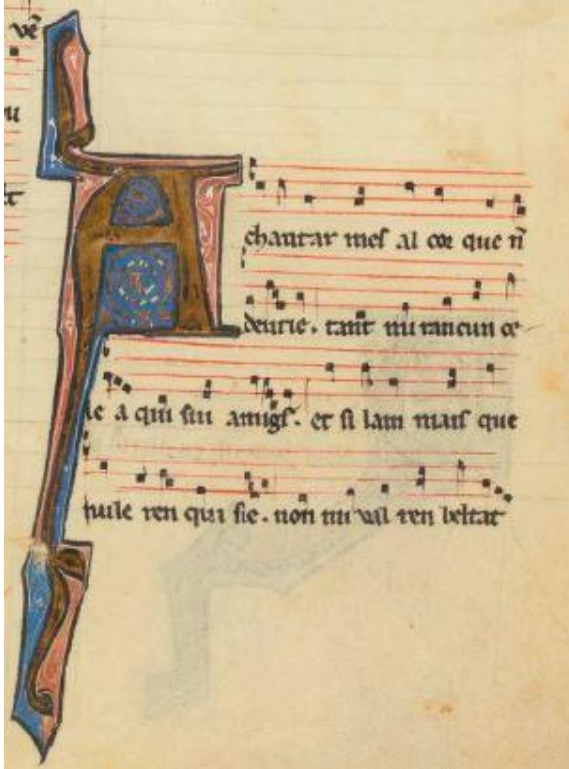 A chantar mes al cor que n̄
deurie. tant mi rancun ce
le a qui sui amigs. et si lam mais que
nuile ren qui sie. non mi val ren beltat